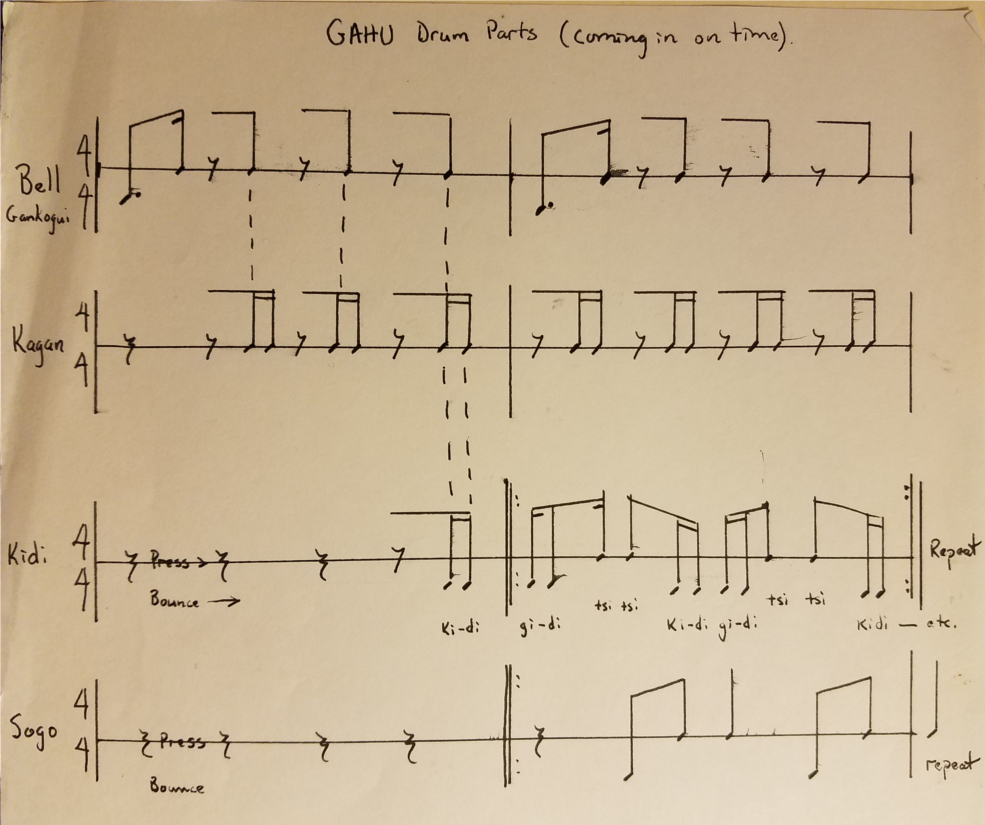 GAHU Drum Parts (coming in on time).
Bell
Gankogui
4
4
Kagan
4
4
Kidi
4
4
Press
Bounce
Ki-di
gi-di
tsi tsi
Ki-di gi-di
tsi tsi
Kidi — etc.
Repeat
Sogo
4
4
Press
Bounce
repeat